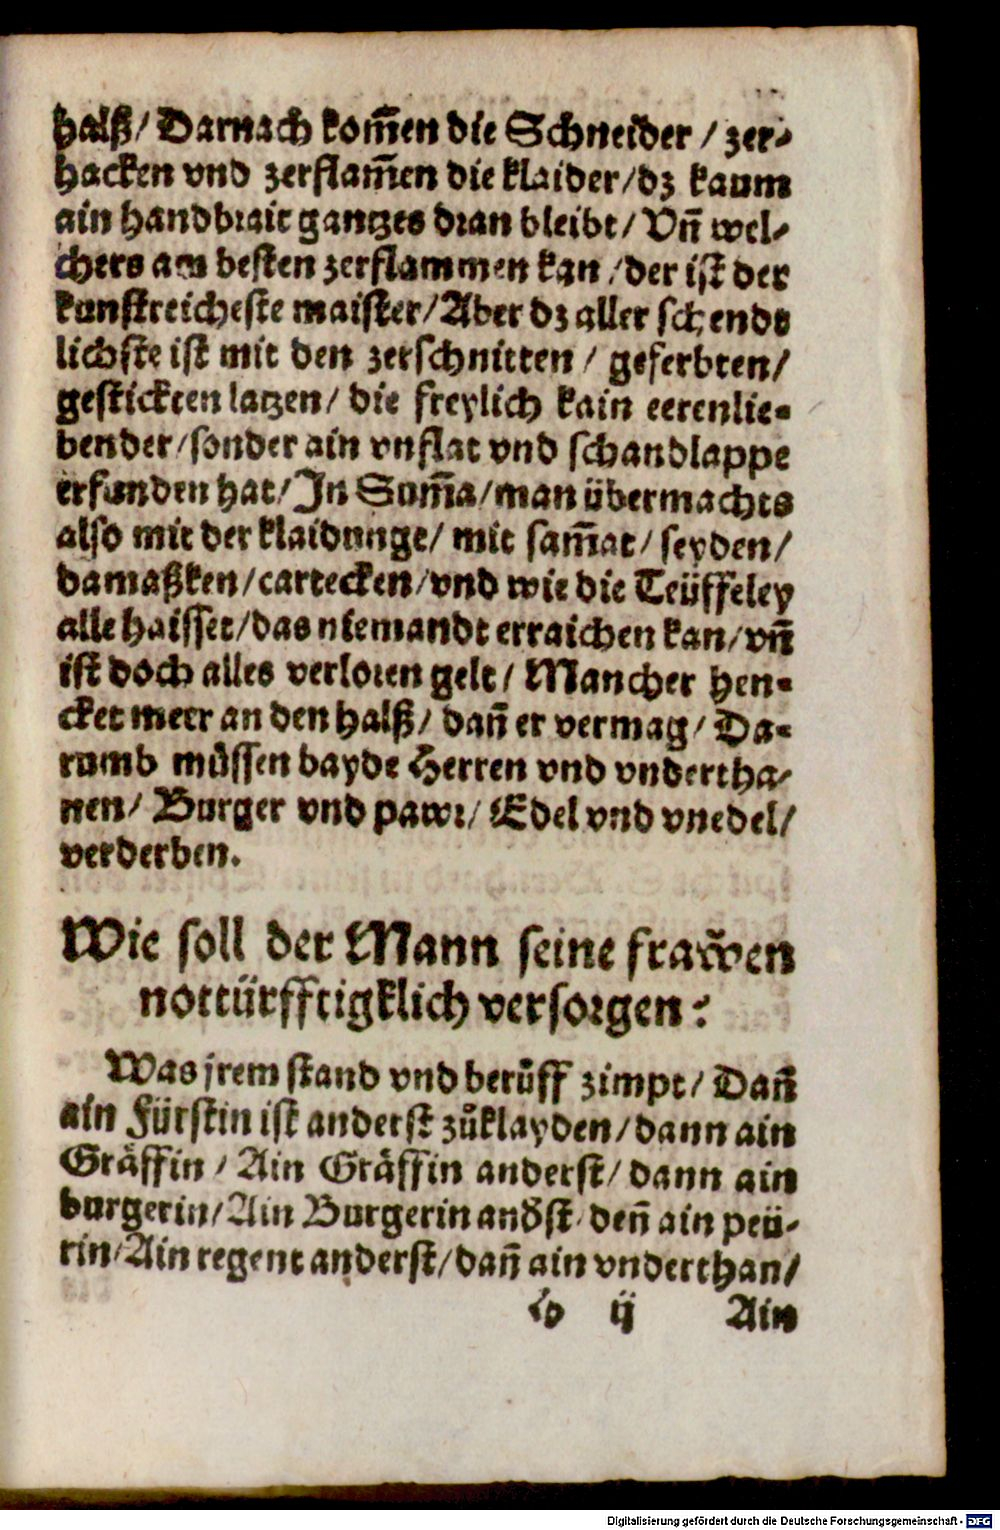 halß/ Darnach kom̃en die Schneider / zer-
hacken vnd zerflam̃en die klaider/dz kaum
ain handbrait gantzes dran bleibt/ Vñ wel-
chers am besten zerflammen kan /der ist der
kunstreicheste maister/Aber dz aller schendt
lichste ist mit den zerschnitten / geferbten/
gestickten latzen/ die freylich kain eerenlie-
bender/sonder ain vnflat vnd schandlappe
erfunden hat/Jn Sum̃a/man übermachts
also mit der klaidunge/ mit sam̃at/ seyden/
damaßken/cartecken/vnd wie die Teüffeley
alle haisset/das niemandt erraichen kan/vñ
ist doch alles verloren gelt/ Mancher hen-
cket meer an den halß/ dañ er vermag/ Da-
rumb můssen bayde Herren vnd vndertha-
nen/ Burger vnd pawr/ Edel vnd vnedel/
verderben.
Wie soll der Mann seine frawen
nottürfftigklich versorgen?
Was jrem stand vnd berůff zimpt/ Dañ
ain Fürstin ist anderst zůklayden/dann ain
Gräffin / Ain Gräffin anderst/ dann ain
burgerin/Ain Burgerin andst/ deñ ain peü-
rin/Ain regent anderst/dañ ain vnderthan/
ij Ain
Digitalisierung gefördert durch die Deutsche Forschungsgemeinschaft - DFG